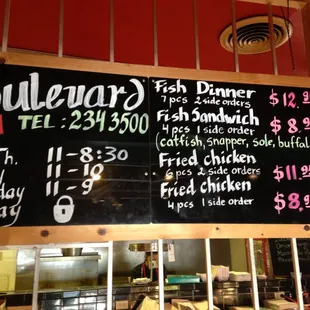 oulevard
TEL : 234 3500
Th. 11 - 8:30
11 - 10
day 11 - 9
ay
Fish Dinner $12.
7 pcs 2 side orders
Fish Sandwich $8.
4 pcs 1 side order
(catfish, snapper, sole, buffal
Fried chicken $11.
6 pcs 2 side orders
Fried chicken $8.
4 pcs 1 side order